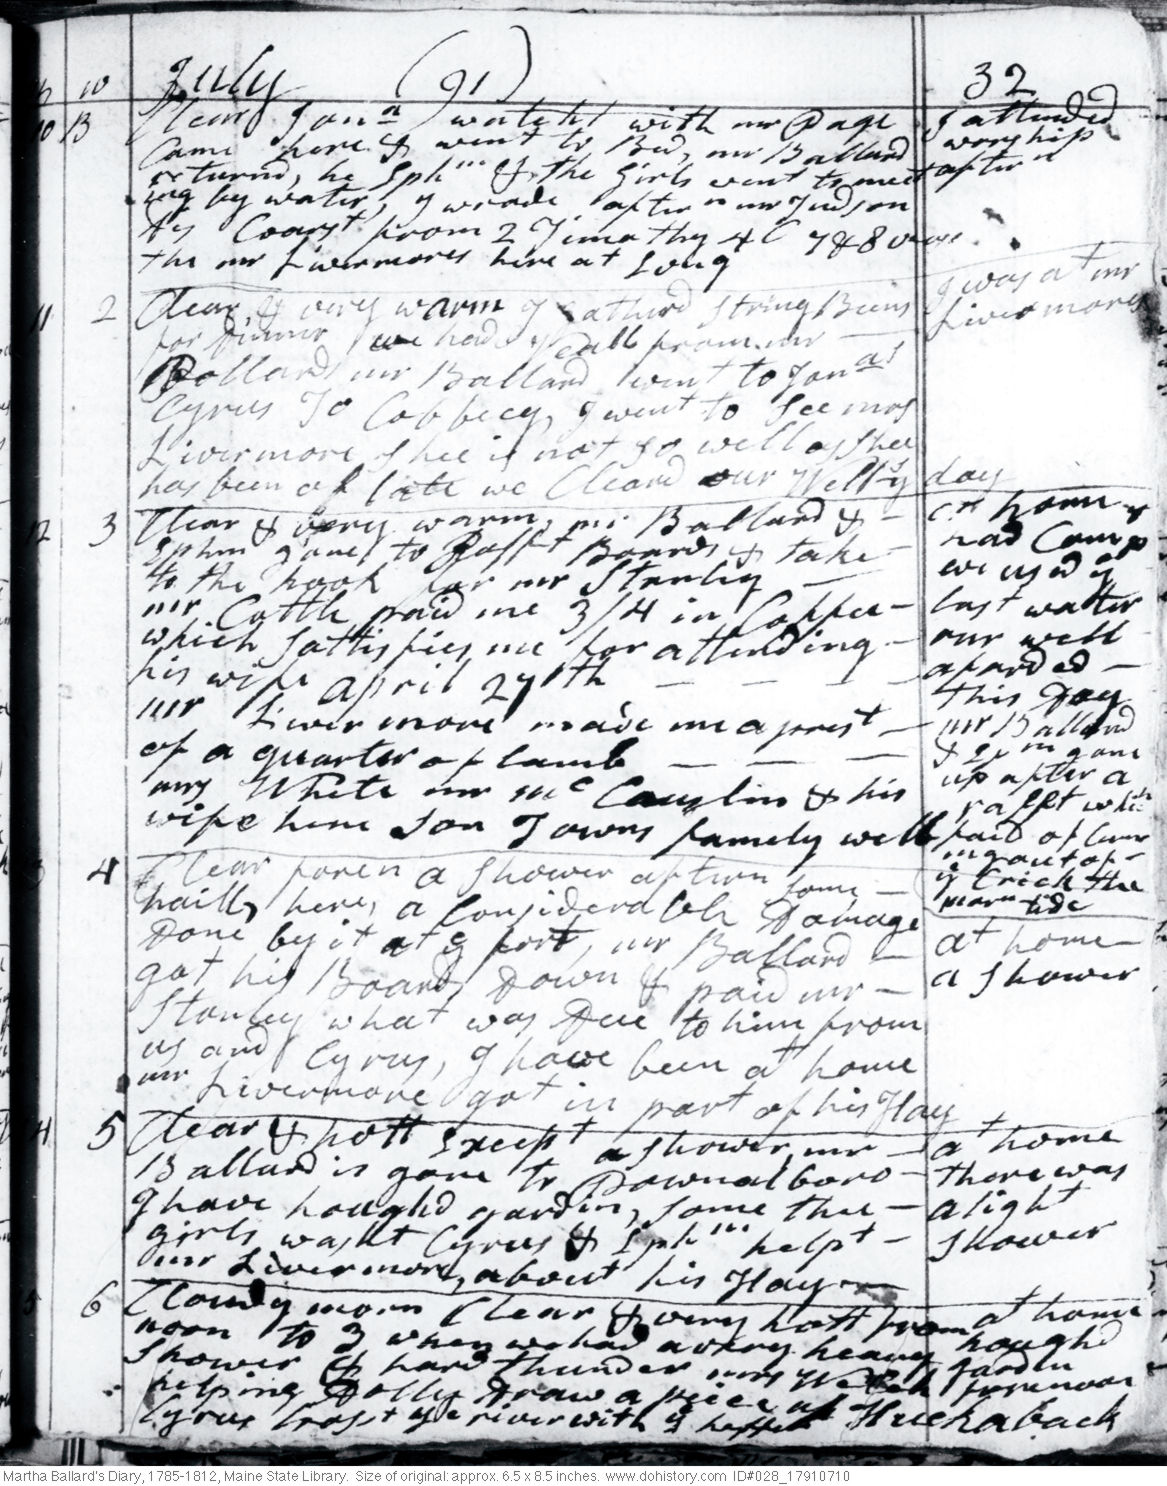 July (91) 32
10 B Clear Jonn watcht with mr Page
Came here & went to Bed, mr Ballard
returnd, he Ephm & the Girls went to meet
ing by water, I went after n mr Judson
Coarst from 2 Timothy 4 C 7 & 8 vers.
the mr Livermores here at
I attended
worship
aftern
11 2 Clear & very warm I Gatherd String Beens
for Dinner we had a Call from mr
Pollard mr Ballard went to Jonas
Cyrus To Cobbecy, I went to See mrs
Livermore Shee is not So well as Shee
has been of late we Cleard our Well ys day
I was at mr
Livermores
12 3 Clear & very warm, mr Ballard &
Ephm gone to Rafft Boards & take
to the hook for mr Stanley
mr Cottle paid me 3/4 in Coffee
which Sattisfies me for attending
his wife April 27th
mr Livermore made me a prest
of a quarter of lamb
mrs White mr Mc Causlin & his
wife here Son Towns famely well
at home
had Comp
we used ye
last watter
our well
aforded
this Day
mr Ballard
& Epm gone
up after a
rafft which
faid of Com
ing out of
ye Crick the
morn tide
4 Clear foren a Shower aftern Some
haill, here, a Considerable Damage
Done by it at ye fort, mr Ballard
got his Boards Down & paid mr
Stanley what was Due to him from
us and Cyrus, I have been at home
mr Livermore got in part of his Hay
at home
a Shower
14 5 Clear & hott Except a Shower, mr
Ballard is gone to Pownalboro
I have houghd gardin, Some the
girls washt Cyrus & Ephm helpt
mr Livermore, about his Hay
at home
there was
a light
Shower
6 Cloudy morn Clear & very hott from
noon to 3 when we had a very heavy
Shower & hard thunder mrs Welch
helping Dolly Draw a piece of Huckaback
Cyrus Crost ye river with ye
at home
houghd
garden
forenoon
Martha Ballard's Diary, 1785-1812, Maine State Library. Size of original: approx. 6.5 x 8.5 inches. www.dohistory.com ID#028_17910710